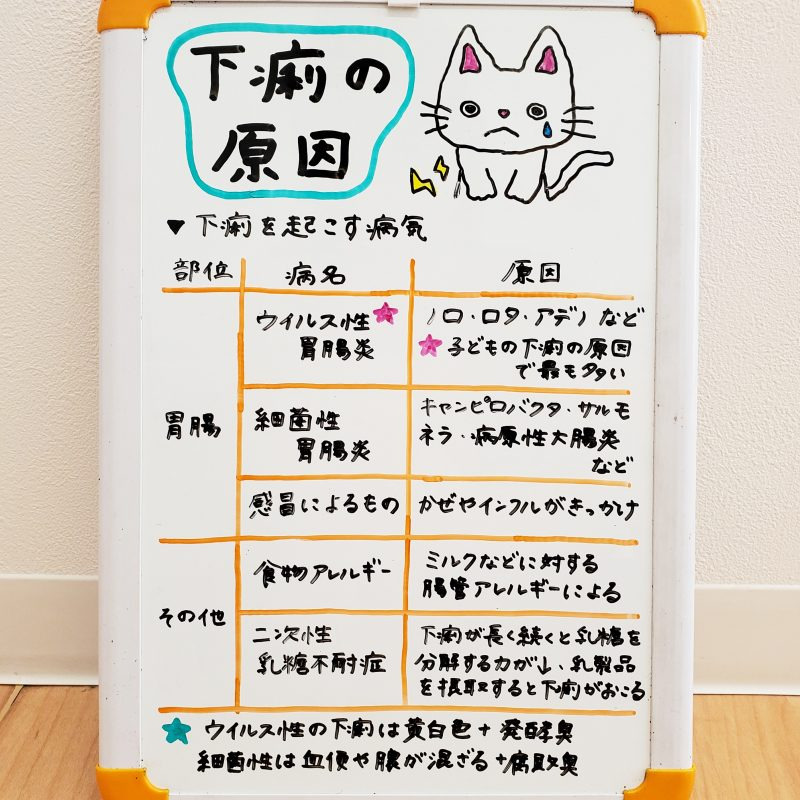 下痢の
原因
▼下痢を起こす病気
部位 病名 原因
胃腸
ウイルス性★
胃腸炎
ノロ・ロタ・アデノなど
★子どもの下痢の原因
で最も多い
細菌性
胃腸炎
キャンピロバクタ・サルモ
ネラ・病原性大腸炎
など
感冒によるもの
かぜやインフルがきっかけ
その他
食物アレルギー
ミルクなどに対する
腸管アレルギーによる
二次性
乳糖不耐症
下痢が長く続くと乳糖を
分解する力が↓、乳製品
を摂取すると下痢がおこる
★ウイルス性の下痢は黄白色+発酵臭
細菌性は血便や膿が混ざる+腐敗臭